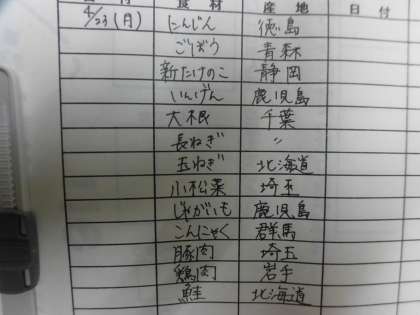 日付 食材 産地 日付
4/23(月) にんじん 徳島
ごぼう 青森
新たけのこ 静岡
いんげん 鹿児島
大根 千葉
長ねぎ 〃
玉ねぎ 北海道
小松菜 埼玉
じゃがいも 鹿児島
こんにゃく 群馬
豚肉 埼玉
鶏肉 岩手
鮭 北海道